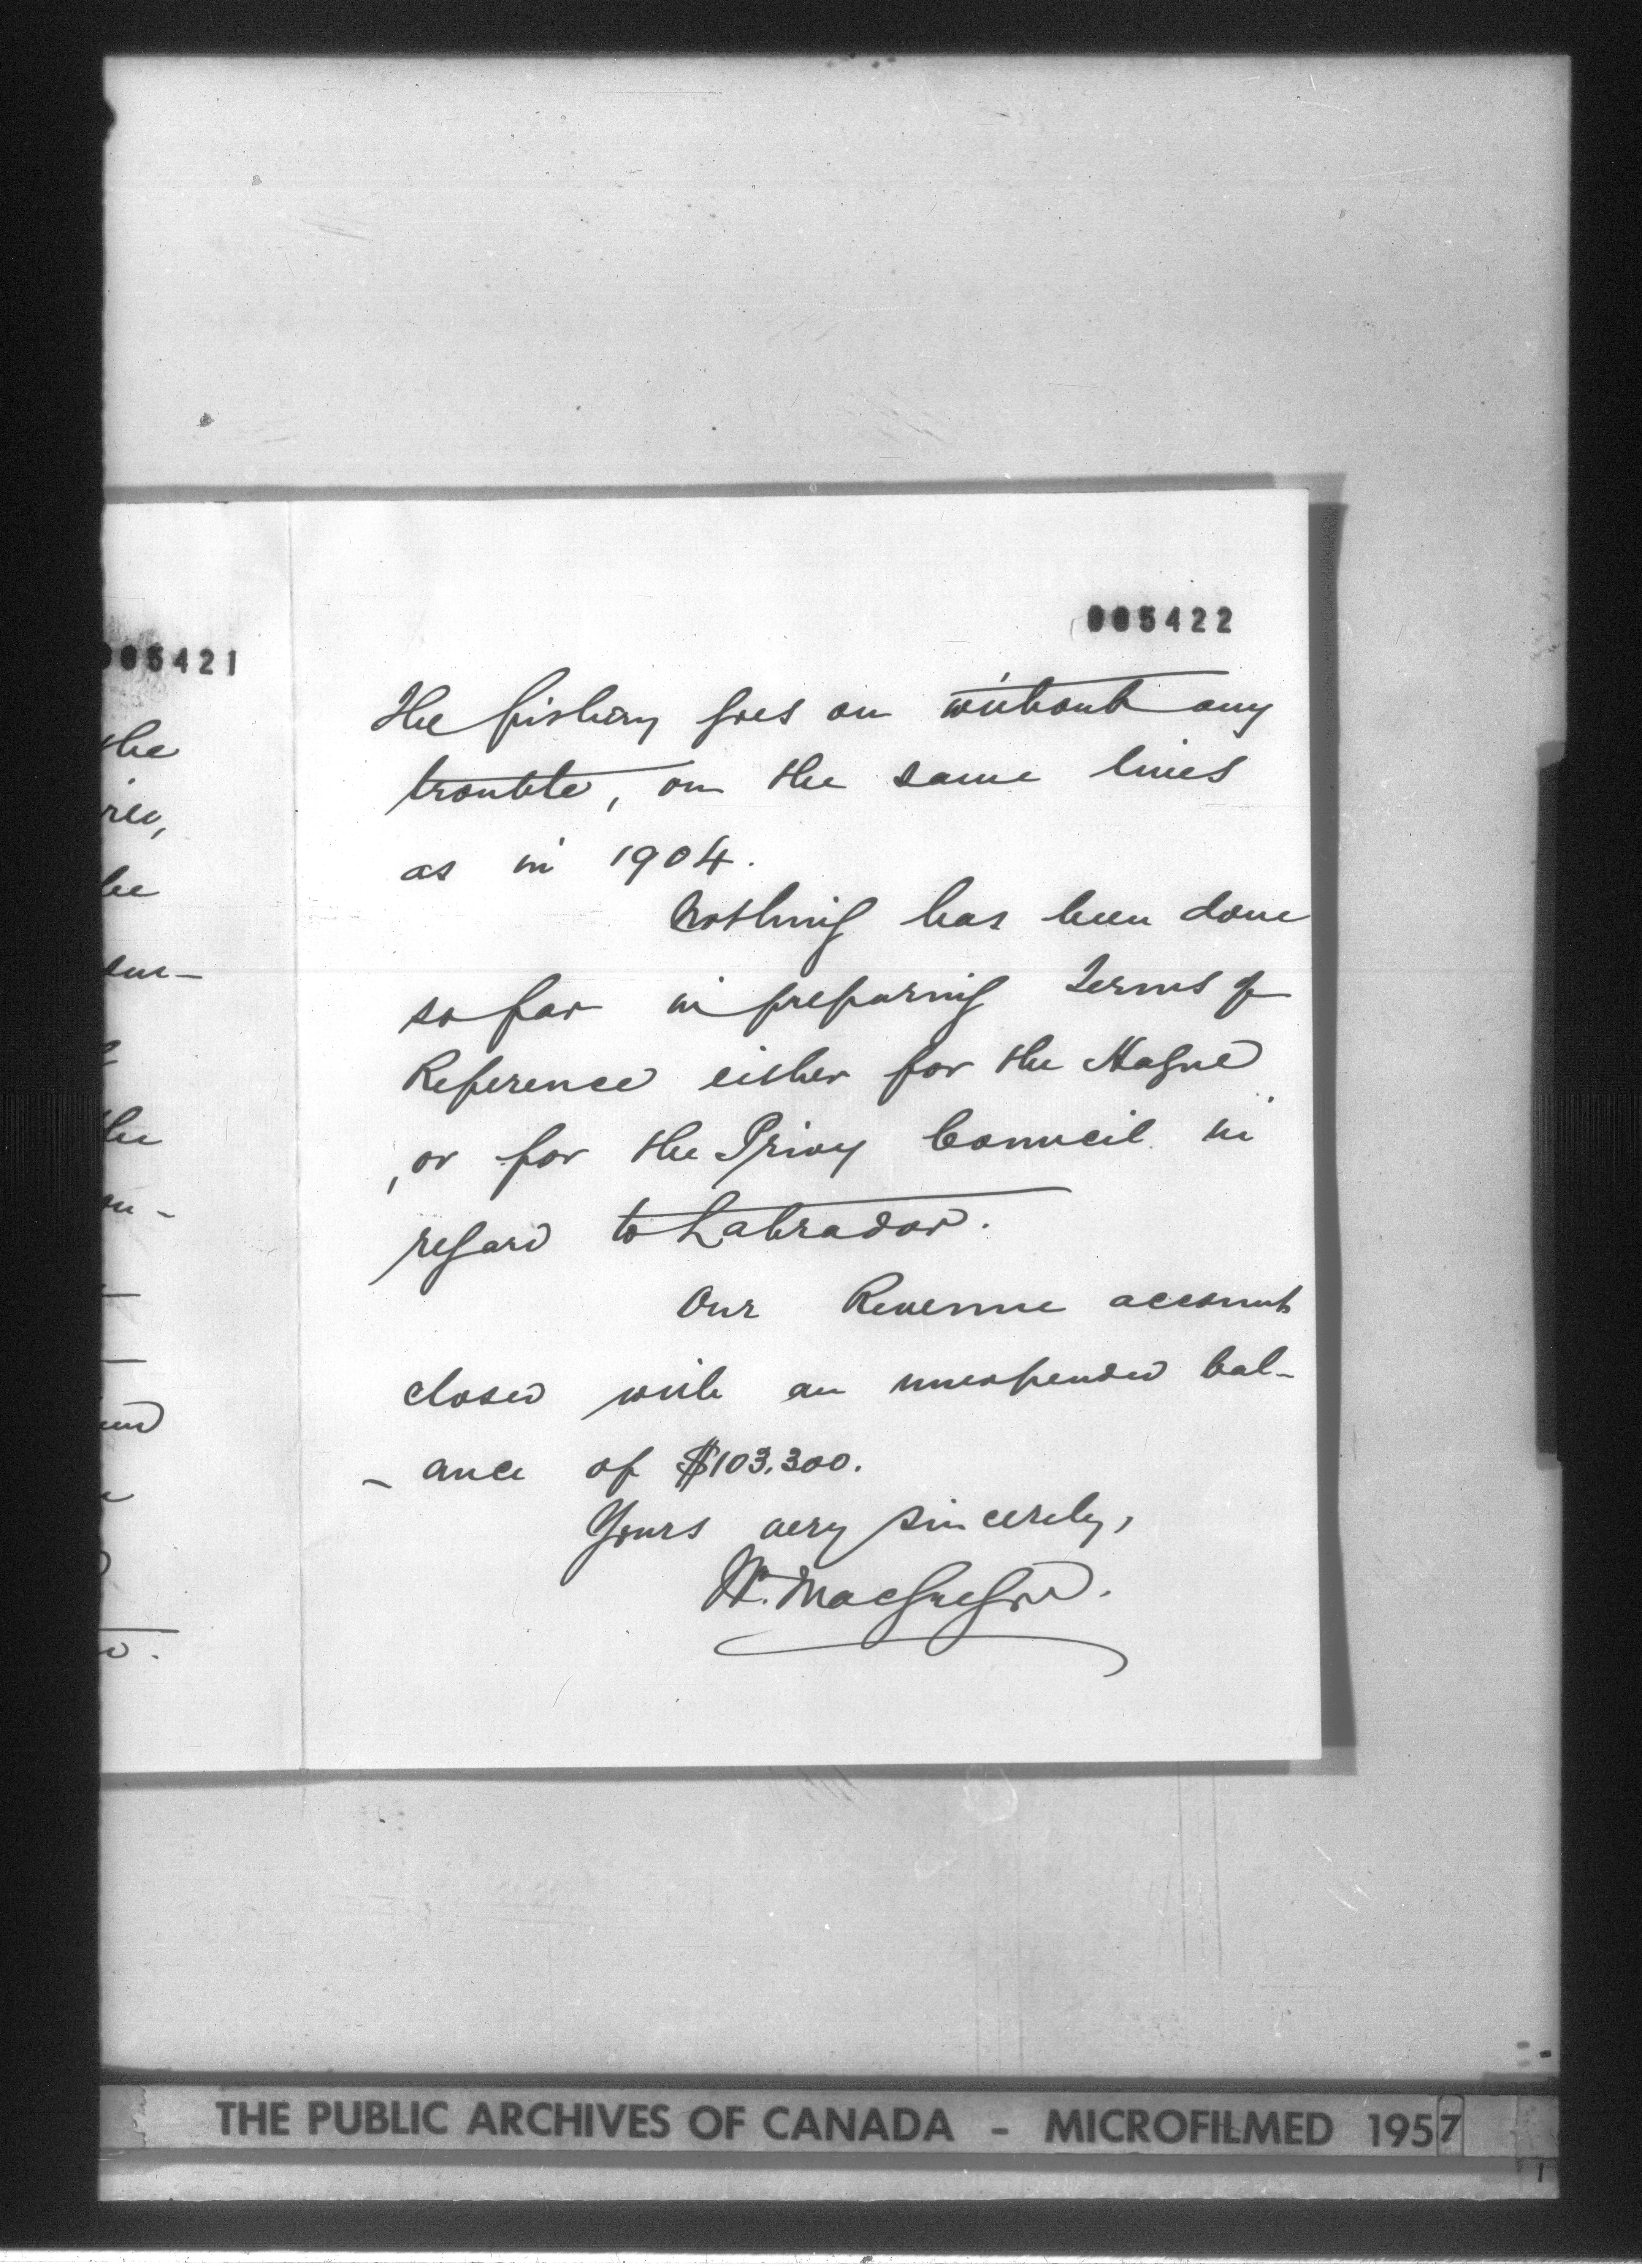 005421
the
he
the
005422
The fishery goes on without any
trouble, on the same lines
as in 1904.
Nothing has been done
so far in preparing terms of
Reference either for the Hague
, or for the Privy Council in
regard to Labrador.
Our Revenue account
closed with an unexpended bal-
- ance of $103,300.
Yours very sincerely,
Wm. MacGregor.
THE PUBLIC ARCHIVES OF CANADA - MICROFILMED 1957